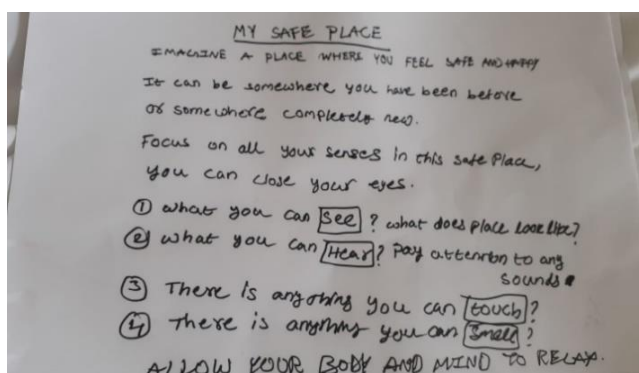 MY SAFE PLACE
IMAGINE A PLACE WHERE YOU FEEL SAFE AND HAPPY
It can be somewhere you have been before
or somewhere completely new.
Focus on all your senses in this safe Place,
you can close your eyes.
① what you can See ? what does place look like?
② what you can Hear? Pay attention to any
sounds.
③ There is anything you can touch?
④ There is anything you can Smell?
ALLOW YOUR BODY AND MIND TO RELAX.